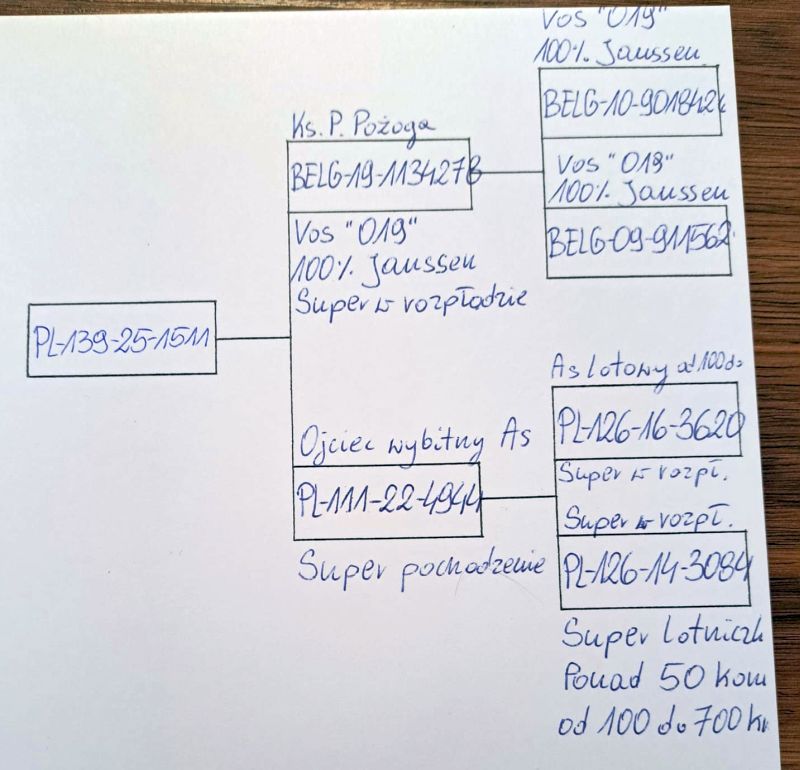 Vos "019"
100% Janssen
BELG-10-901842
Vos "019"
100% Janssen
BELG-09-911562
Ks. P. Pożoga
BELG-19-1134278
Vos "019"
100% Janssen
Super w rozpłodzie
PL-139-25-1511
Ojciec wybitny As
PL-111-22-4944
Super pochodzenie
As lotowy od 100 do
PL-126-16-3620
Super w rozpł.
Super w rozpł.
PL-126-14-3084
Super lotniczk
Ponad 50 kon
od 100 do 700 k